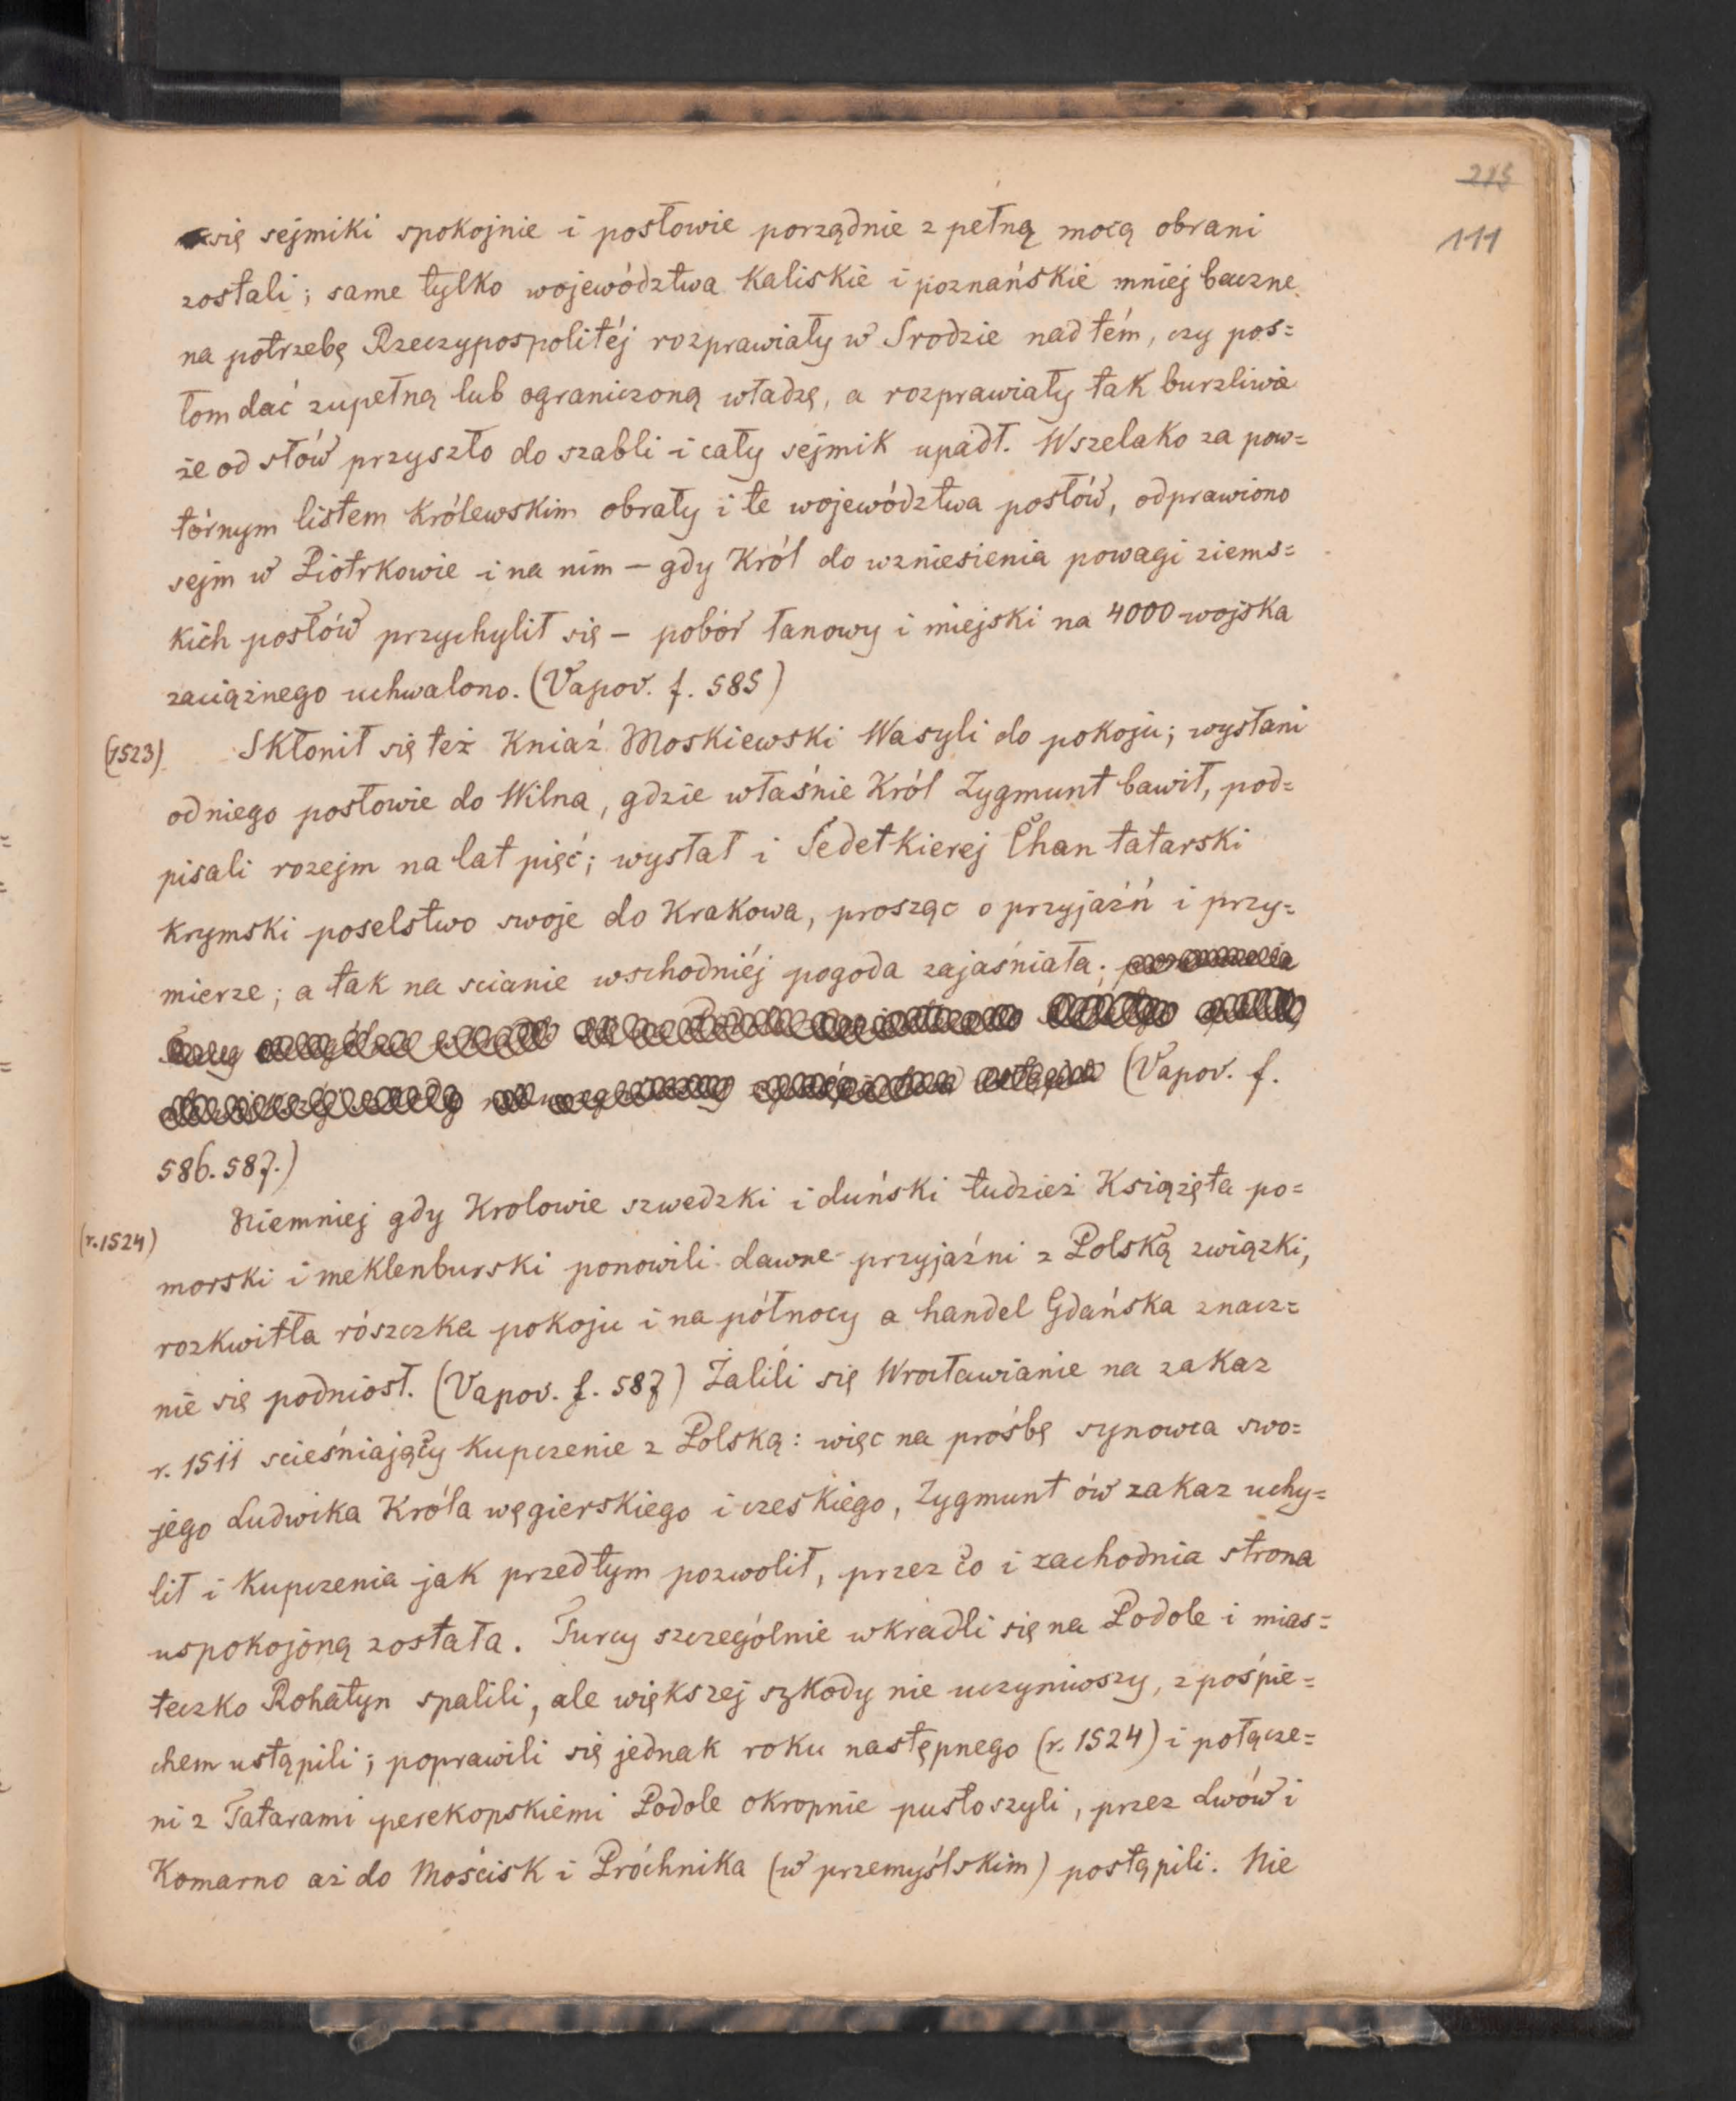 215
111
się sejmiki spokojnie i posłowie porządnie z pełną mocą obrani
zostali; same tylko województwa Kaliskie i poznańskie mniej baczne
na potrzebę Rzeczypospolitéj rozprawiały w Srodzie nad tém, czy pos=
łom dać zupełną lub ograniczoną władzę, a rozprawiały tak burzliwie
że od słów przyszło do szabli i cały sejmik upadł. Wszelako za pow=
tórnym listem Królewskim obrały i te województwa posłów, odprawiono
sejm w Piotrkowie i na nim — gdy Król do wzniesienia powagi ziems=
kich posłów przychylił się — pobór łanowy i miejski na 4000 wojska
zaciążnego uchwalono. (Vapov. f. 585)
(1523) Skłonił się też Kniaź Moskiewski Wasyli do pokoju; wysłani
od niego posłowie do Wilna, gdzie właśnie Król Zygmunt bawił, pod=
pisali rozejm na lat pięć; wysłał i Sedetkierej Chan tatarski
krymski poselstwo swoje do Krakowa, prosząc o przyjaźń i przy=
mierze; a tak na scianie wschodniéj pogoda zajaśniała;
(Vapov. f.
586. 587.)
(r. 1524) Niemniej gdy Krolowie szwedzki i duński tudzież Książęta po=
morski i meklenburski ponowili dawne przyjaźni z Polską związki,
rozkwitła rószczka pokoju i na północy a handel Gdańska znacz=
nie się podniosł. (Vapov. f. 587) Żalili się Wrocławianie na zakaz
r. 1511 scieśniający Kupczenie z Polską: więc na prośbę synowca swo=
jego Ludwika Króla węgierskiego i czeskiego, Zygmunt ów zakaz uchy=
lił i Kupczenia jak przedtym pozwolił, przez co i zachodnia strona
uspokojoną została. Turcy szczególnie wkradli się na Podole i mias=
teczko Rohatyn spalili, ale większej szkody nie uczyniwszy, z pośpie=
chem ustąpili; poprawili się jednak roku następnego (r. 1524) i połącze=
ni z Tatarami perekopskiemi Podole okropnie pustoszyli, przez Lwów i
Komarno aż do Mościsk i Próchnika (w przemyślskim) postąpili. Nie